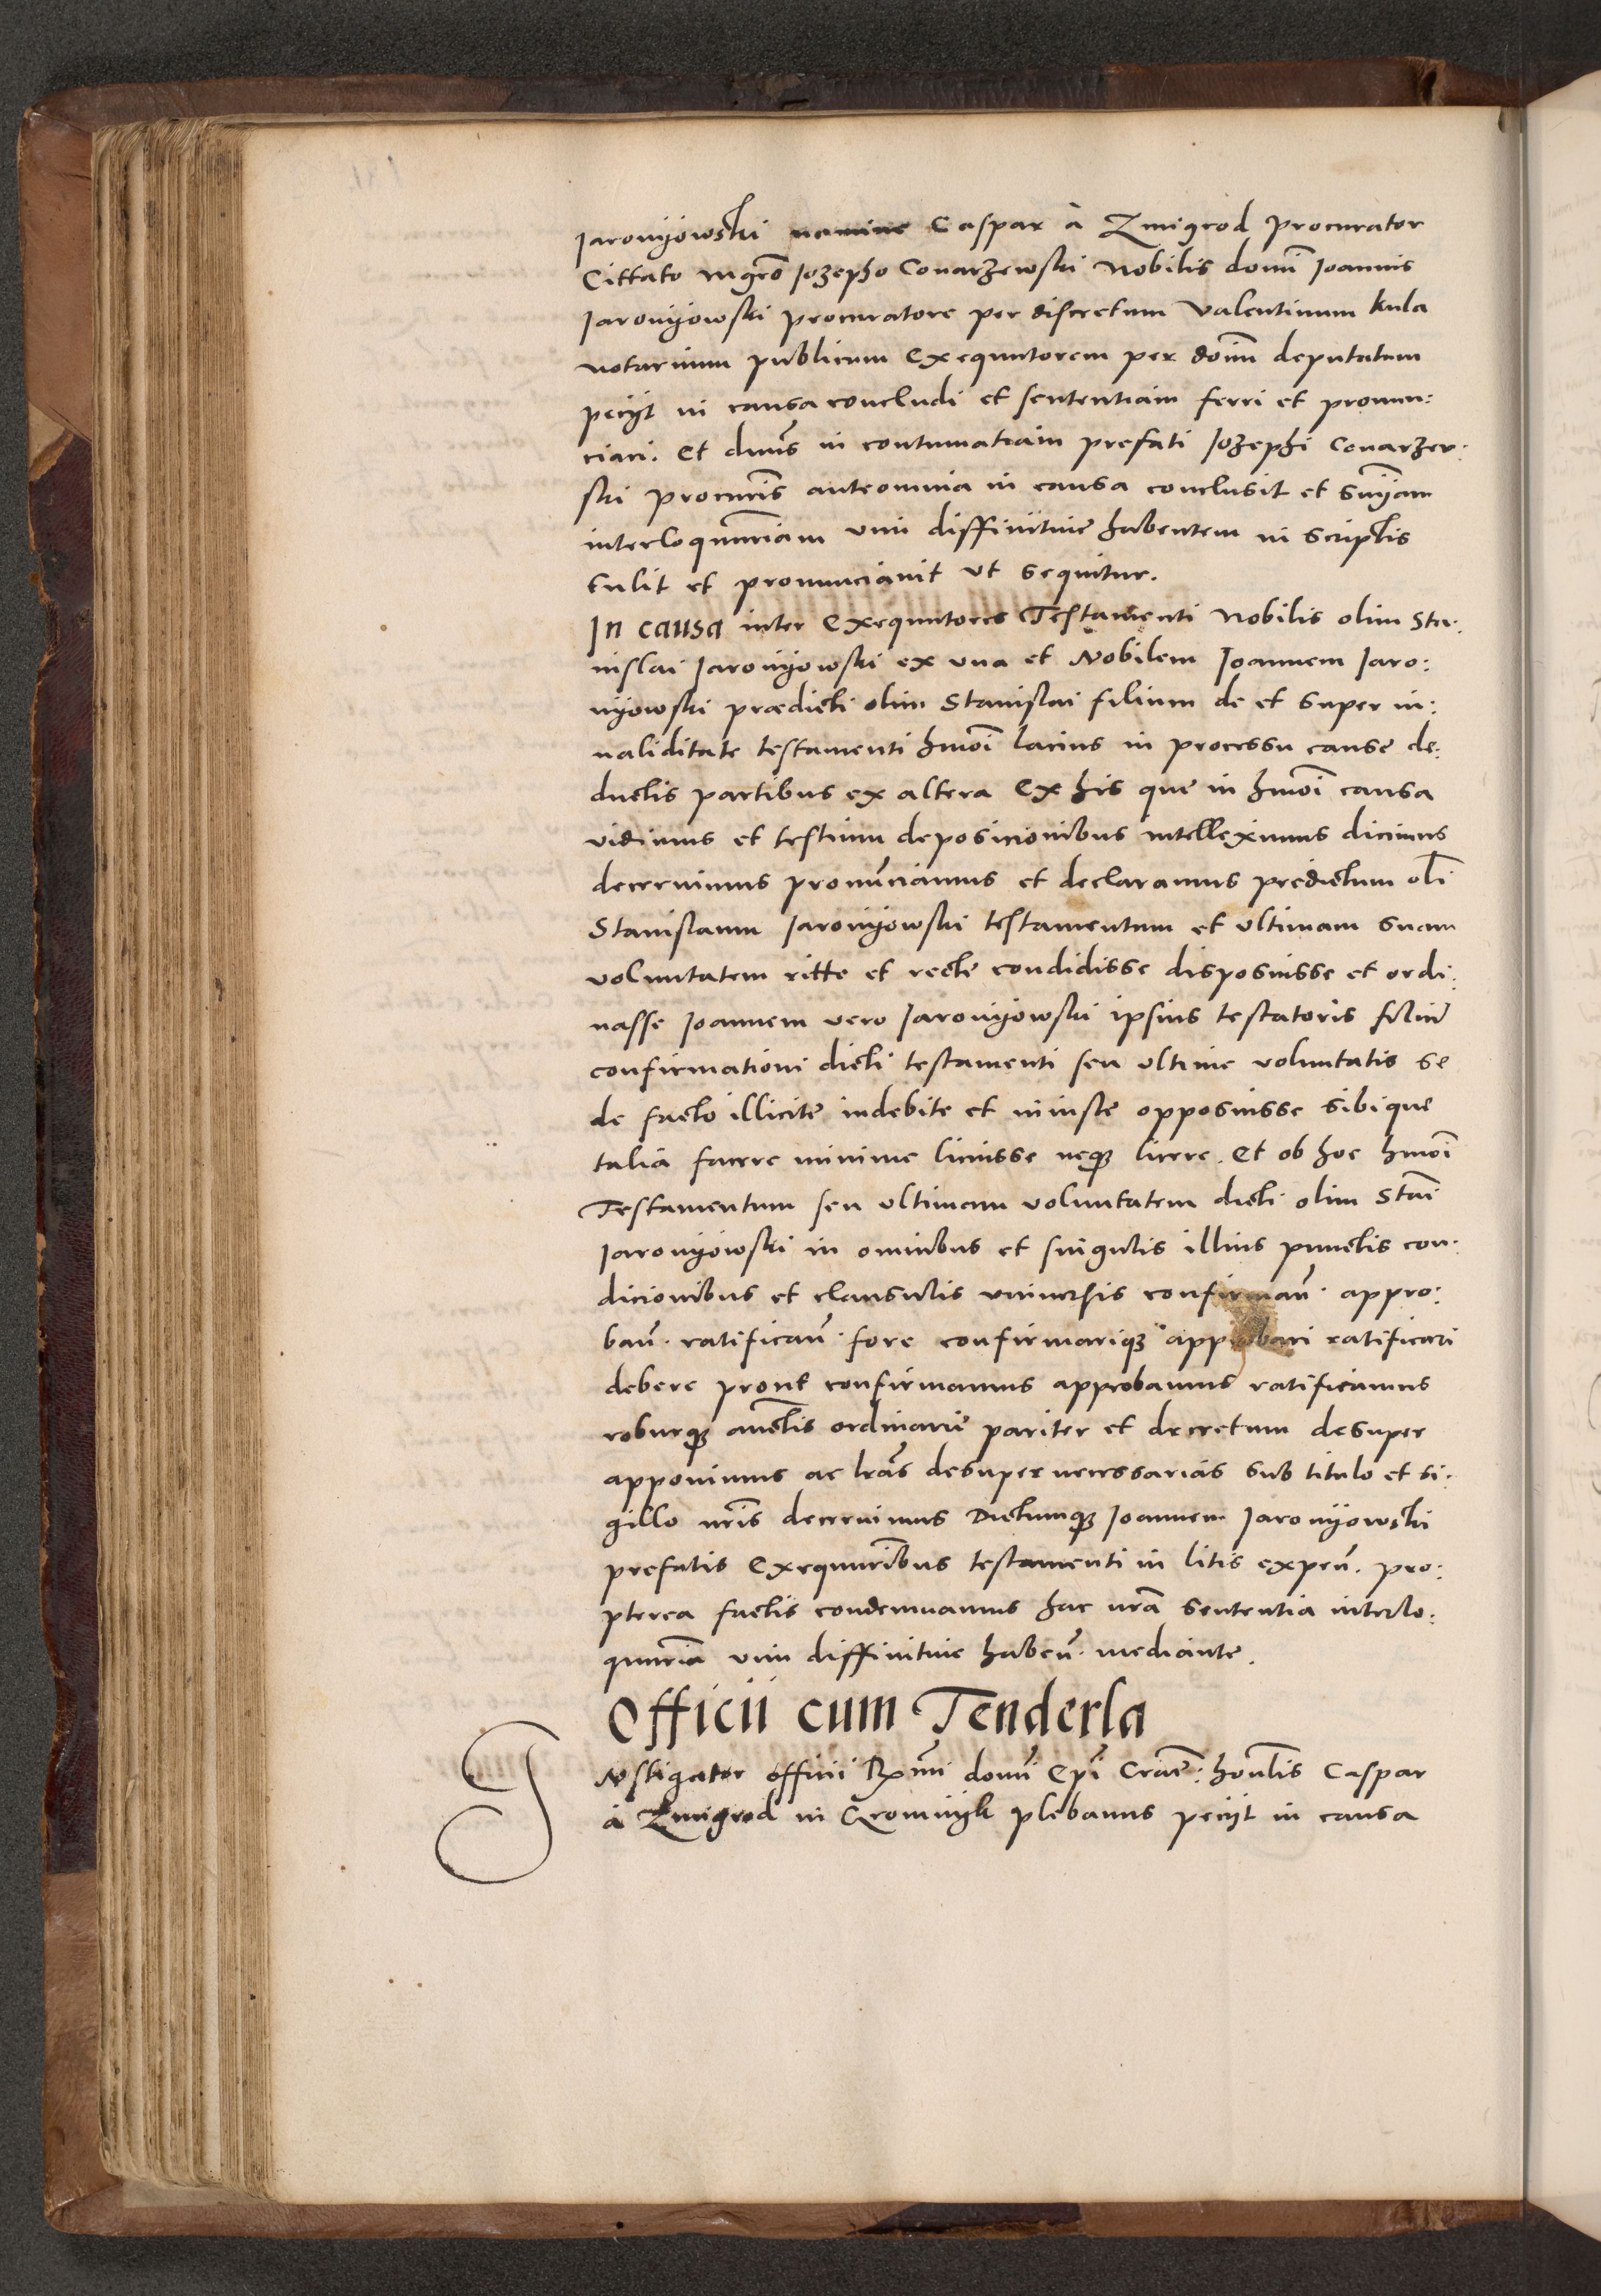 Jaronyowski nomine Caspar à Zmigrod procurator
Cittato mgrō Jozepho Conarzewski Nobilis domī Joannis
Jaronyowski procuratore per discretum Valentinum Kula
notarium publicum Exequutorem per dōnm deputatum
pecyt in causa concludi et sententiam ferri et pronun:
ciari. Et dnūs in contumatiam prefati Jozephi Conarzew:
ski procurīs anteomnia in causa conclusit et snīam
interloquutīam vim diffinitiue habentem in scriptis
tulit et pronunciauit vt sequitur.
In causa inter Exequutores Testamenti Nobilis olim Sta:
nislai Jaronyowski ex vna et Nobilem Joannem Jaro:
nyowski prædicti olim Stanislai filium de et super in:
ualiditate testamenti hmōi lacius in processu cause de:
ductis partibus ex altera Ex his que in hmōi causa
vidimus et testium deposicionibus intelleximus dicimus
decernimus pronūnciamus et declaramus predictum olī
Stanislaum Jaronyowski testamentum et vltimam suam
voluntatem ritte et recte condidisse disposuisse et ordi:
nasse Joannem vero Jaronyowski ipsius testatoris filiū
confirmationi dicti testamenti seu vltime voluntatis se
de facto illicite indebite et iniuste opposuisse sibique
talia facere minime licuisse neqz licere. Et ob hoc hmōi
Testamentum seu vltimam voluntatem dicti olim Stāi
Jaronyowski in omnibus et singulis illius punctis con:
dicionibus et clausulis vniuersis confirmañ. appro:
bañ. ratificañ. fore confirmariqz approbari ratificari
debere prout confirmamus approbamus ratificamus
roburqz auctīs ordinarie pariter et decretum desuper
apponimus ac lrās desuper necessarias sub titulo et si:
gillo nrīs decernimus Dictumqz Joannem Jaronyowski
prefatis Exequutorībus testamenti in litis expeñ. pro:
pterea factis condemnamus hac nrā sententia interlo:
quutīa vim diffinitiue habeñ. mediante.
Officii cum Tenderla
INstigator officii Rxmi domī Epī Cracē: honblis Caspar
à Zmigrod in Cromnyk plebanus pecyt in causa